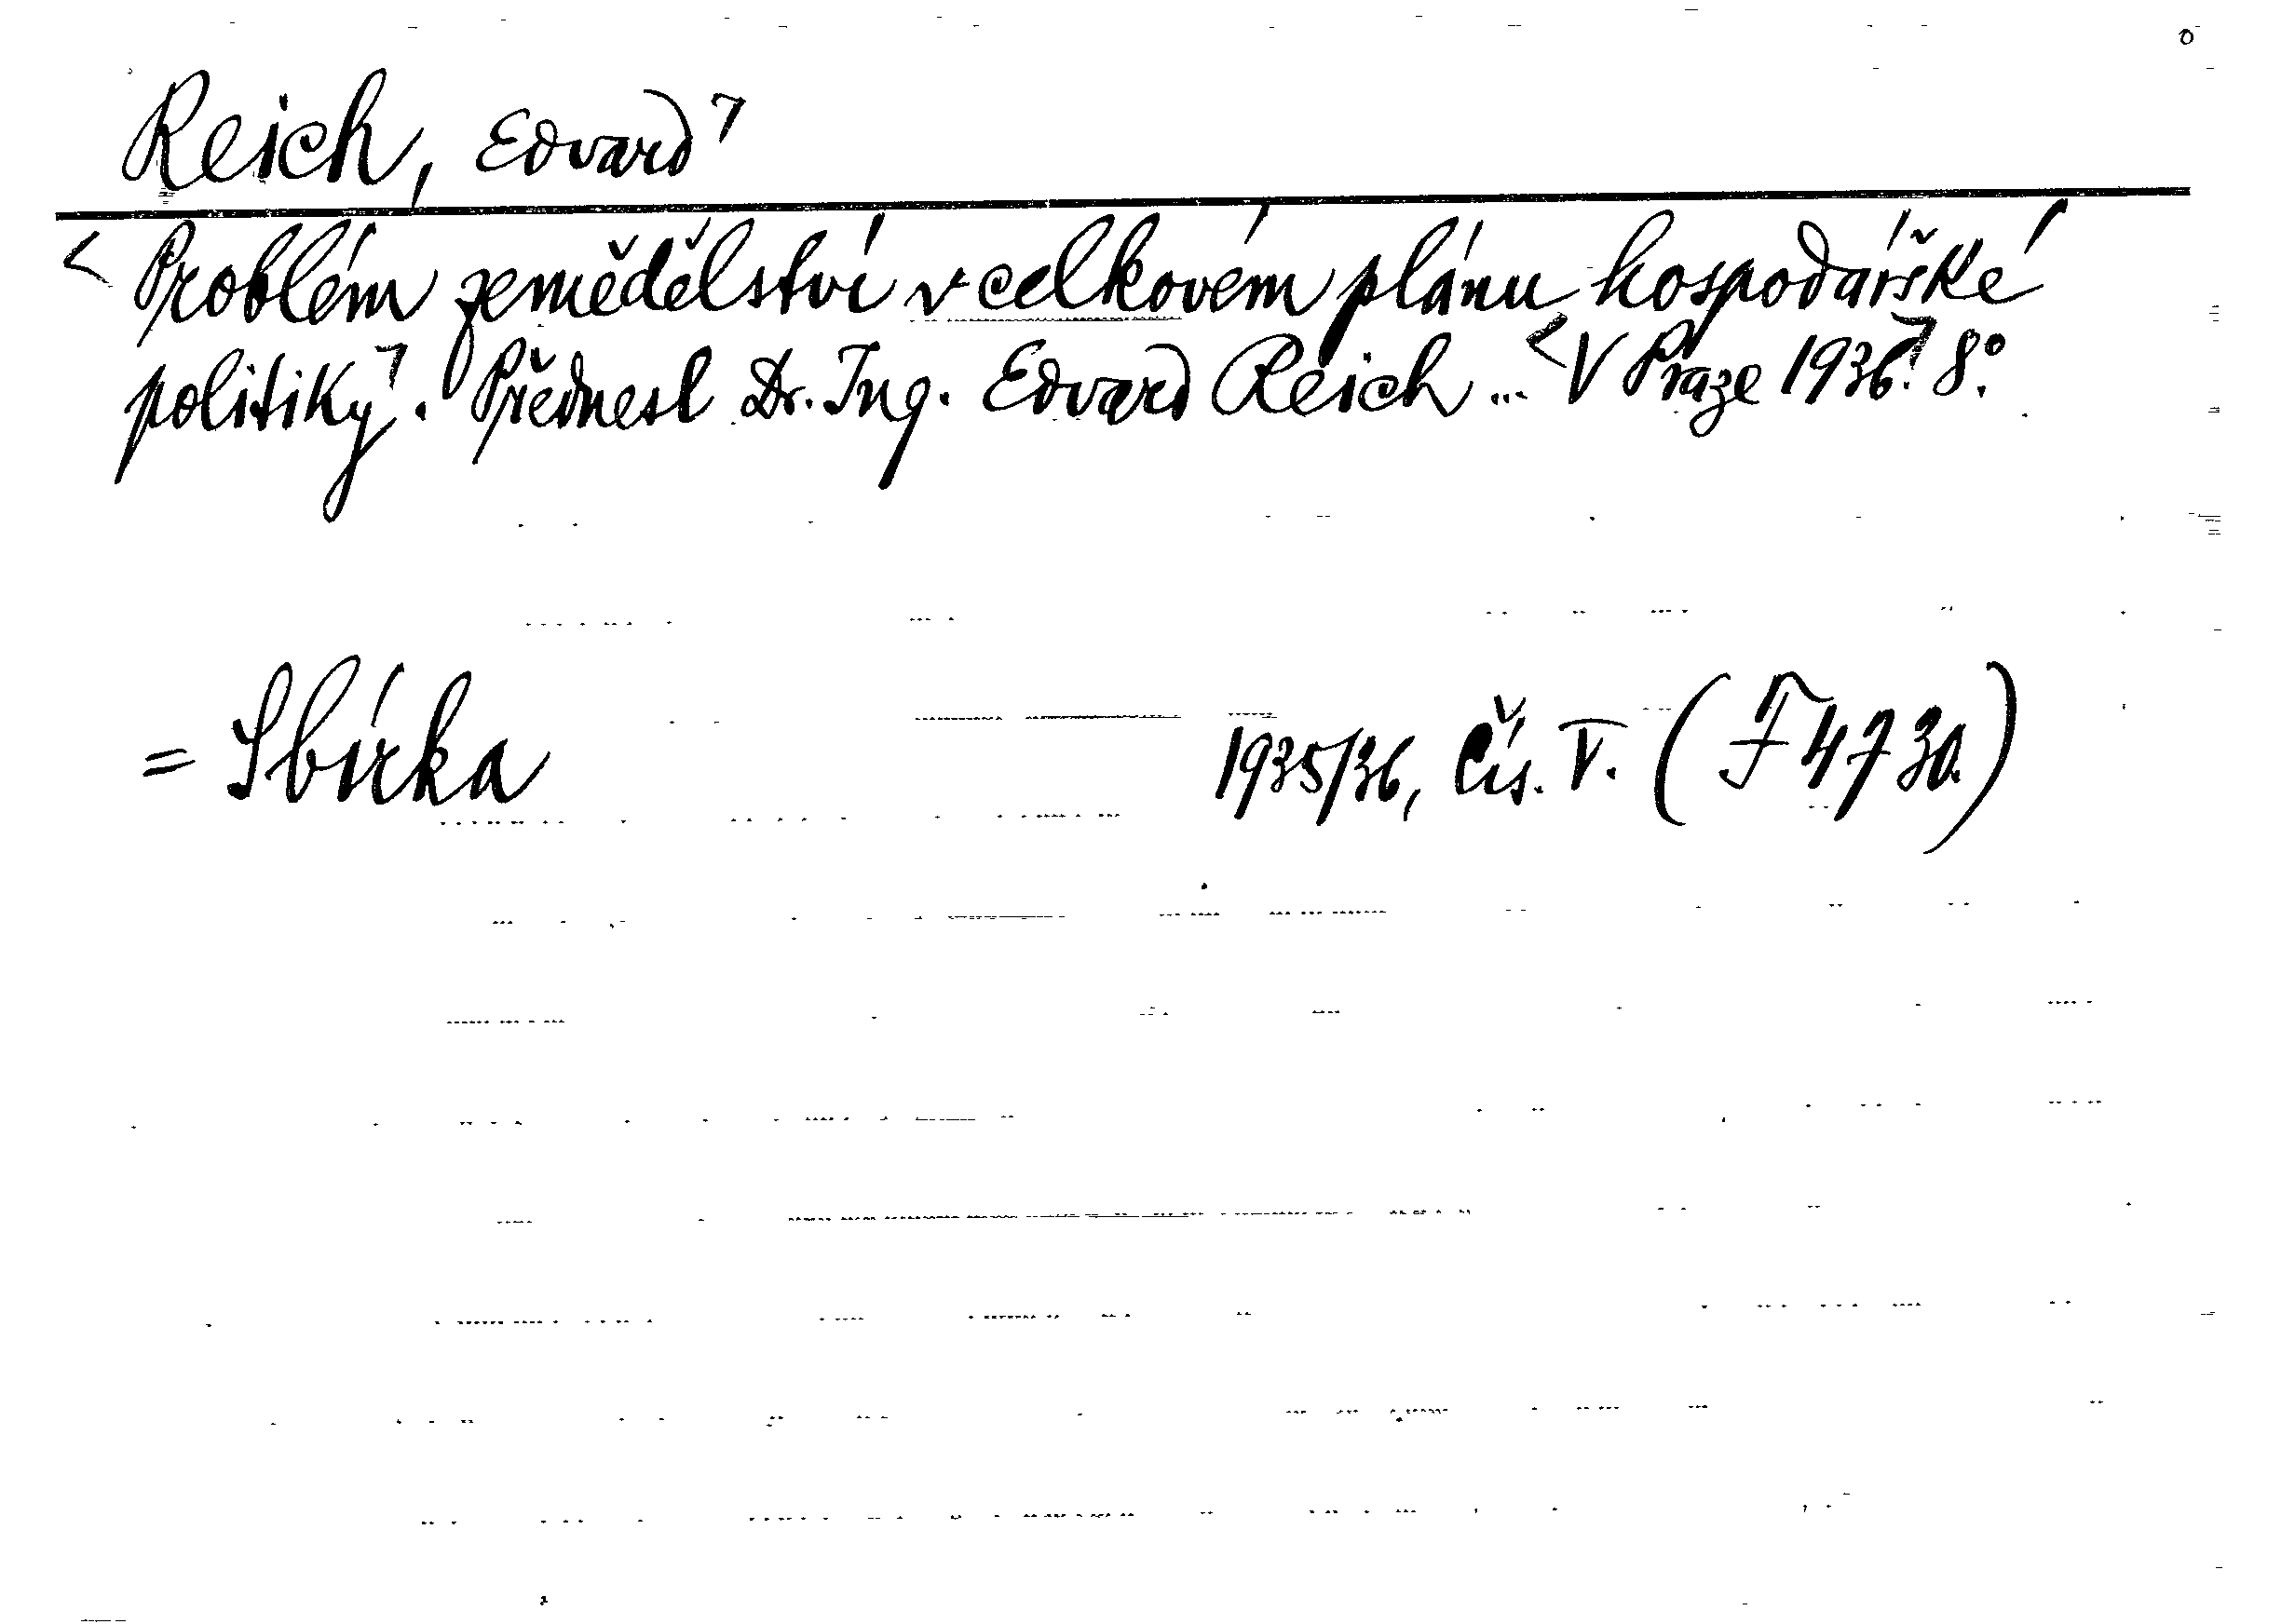 Reich, Edvard
Problém zemědělství v celkovém plánu hospodářské
politiky. Přednesl Dr. Ing. Edvard Reich ... V Praze 1936. 8°.
= Sbírka 1935/36, čís. V. (F 4730.)